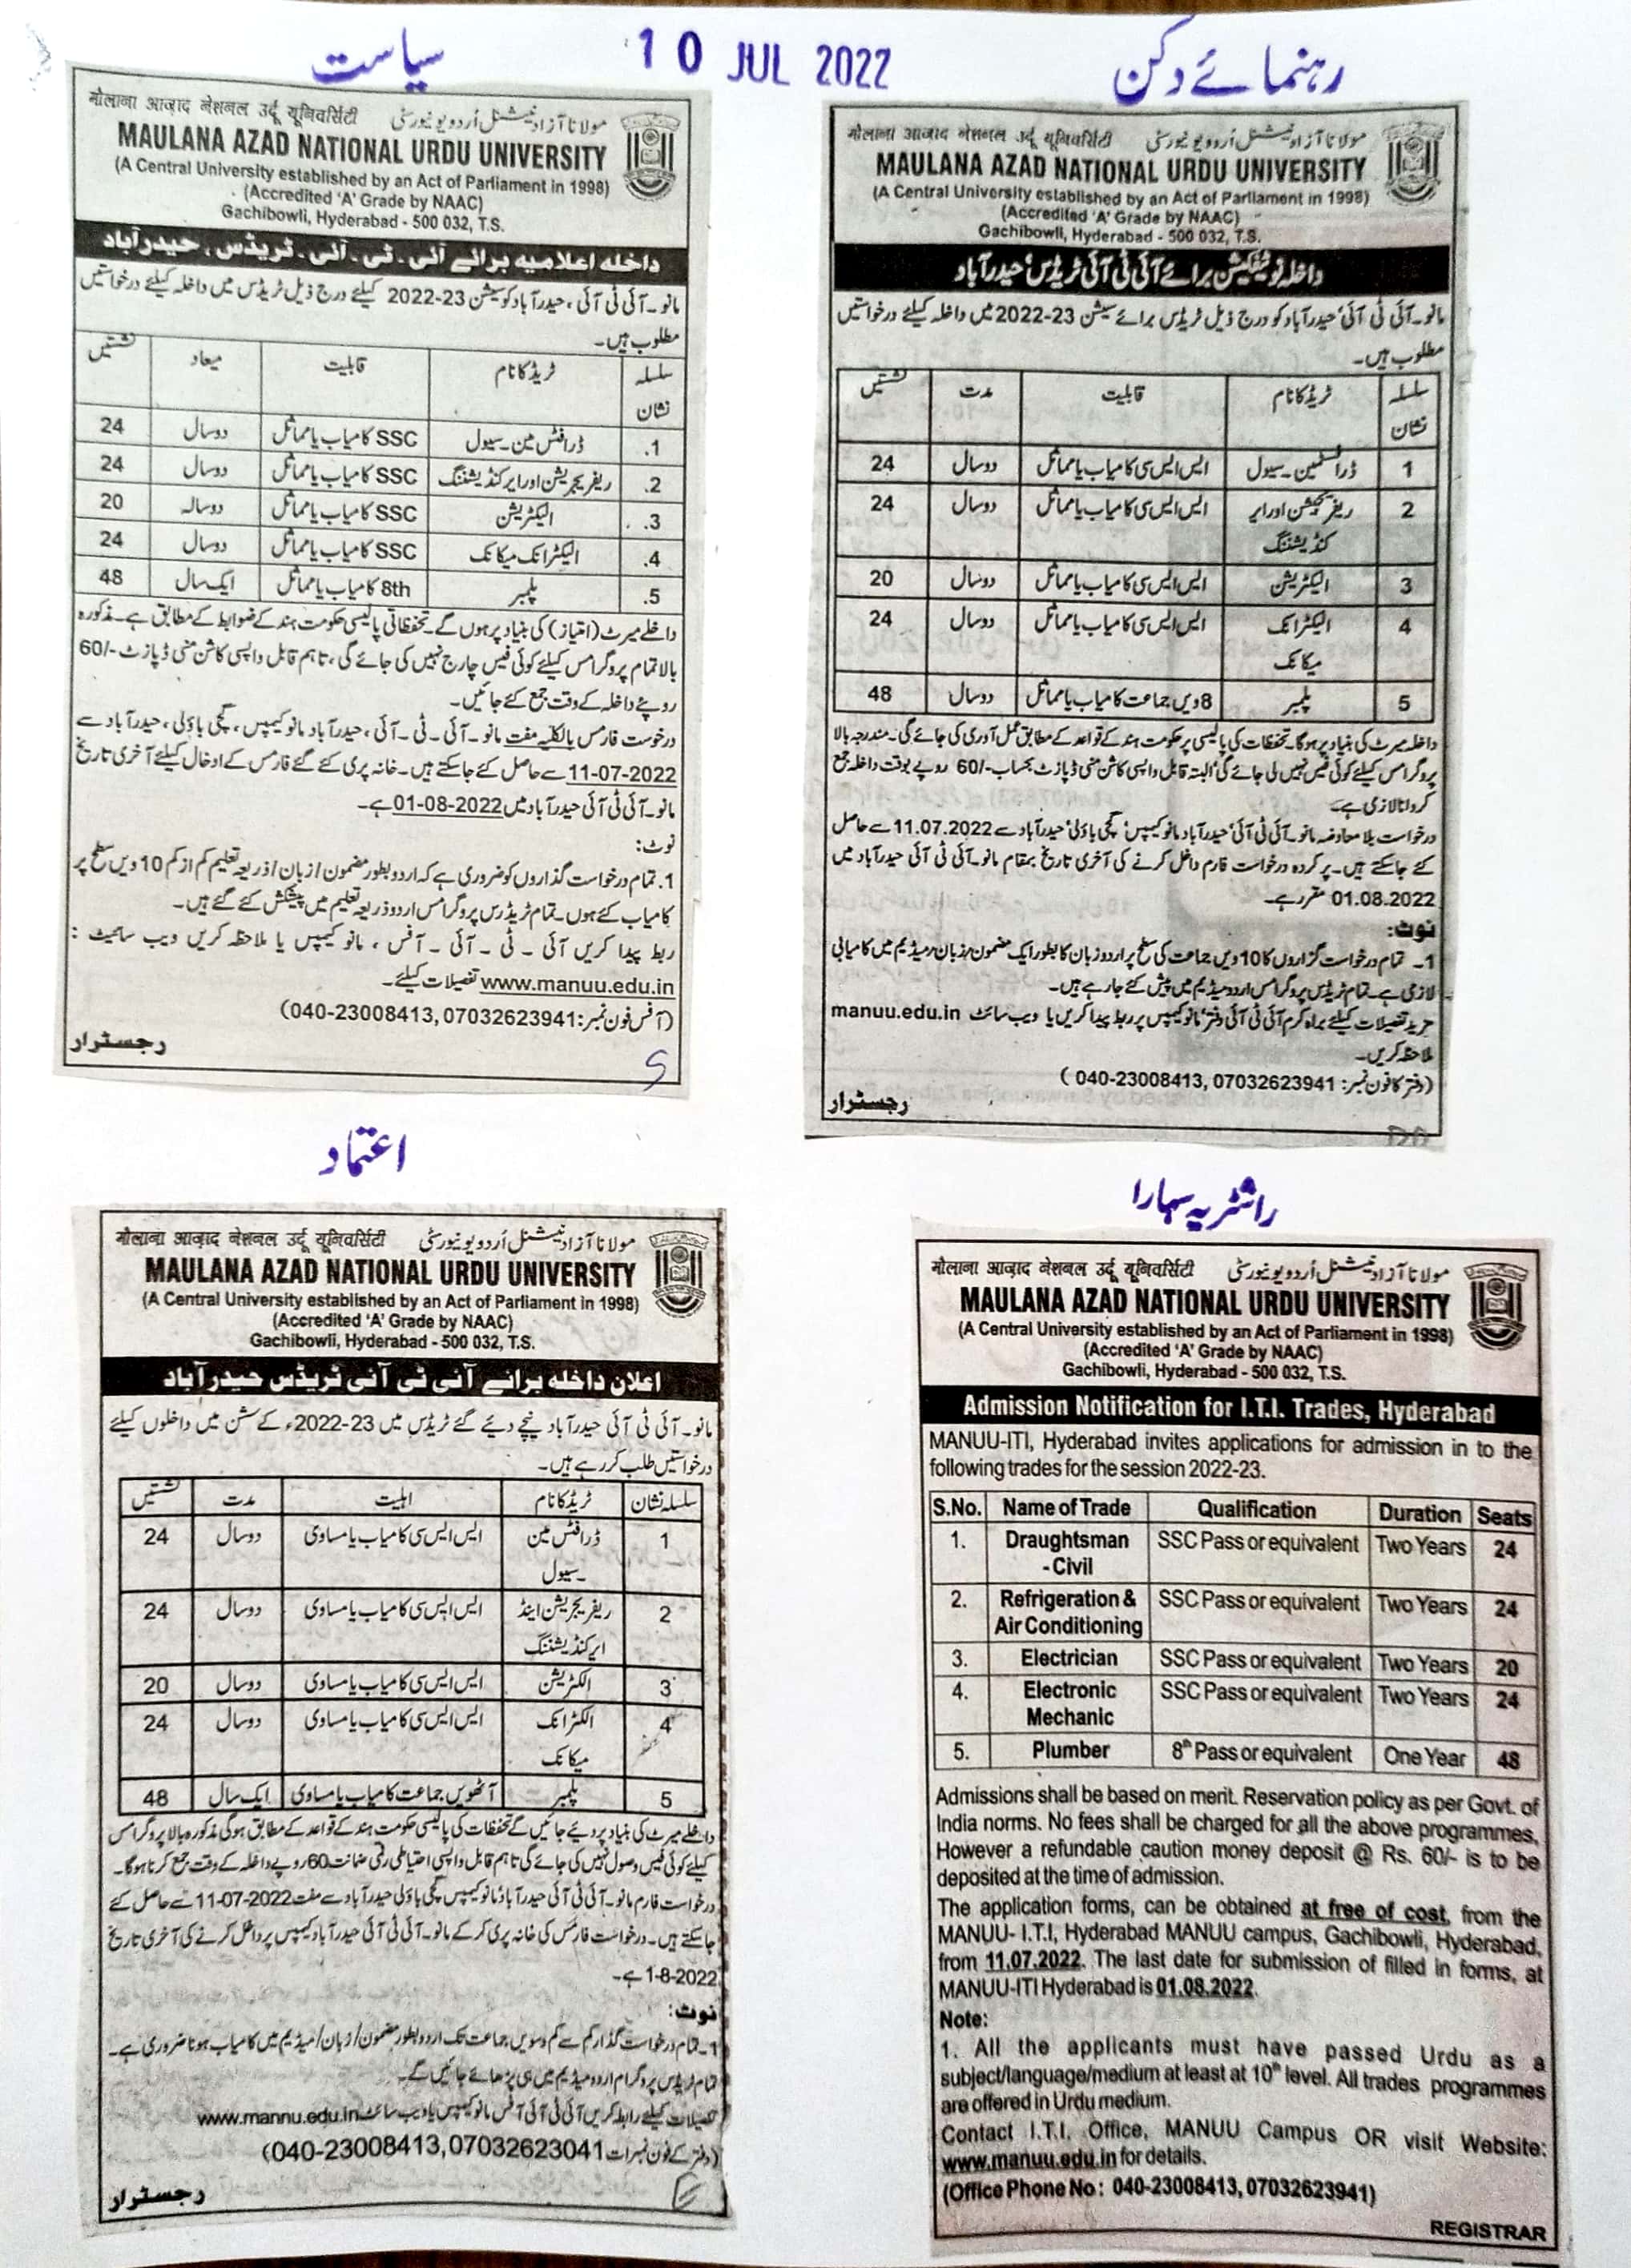 سیاست
10 JUL 2022
رہنمائے دکن
मौलाना आज़ाद नेशनल उर्दू यूनिवर्सिटी مولانا آزاد نیشنل اُردو یونیورسٹی
MAULANA AZAD NATIONAL URDU UNIVERSITY
(A Central University established by an Act of Parliament in 1998)
(Accredited 'A' Grade by NAAC)
Gachibowli, Hyderabad - 500 032, T.S.
داخلہ اعلامیہ برائے آئی ۔ ٹی ۔ آئی ۔ ٹریڈس ، حیدرآباد
مانو۔ آئی ٹی آئی ، حیدرآباد کو سیشن 23-2022 کیلئے درج ذیل ٹریڈس میں داخلہ کیلئے درخواستیں
مطلوب ہیں۔
سلسلہ نشان ٹریڈ کا نام قابلیت میعاد نشستیں
1. ڈرافٹس مین۔ سیول SSC کامیاب یا مماثل دو سال 24
2. ریفریجریشن اور ایر کنڈیشننگ SSC کامیاب یا مماثل دو سال 24
3. الیکٹریشن SSC کامیاب یا مماثل دو سالہ 20
4. الیکٹرانک میکانک SSC کامیاب یا مماثل دو سال 24
5. پلمبر 8th کامیاب یا مماثل ایک سال 48
داخلے میرٹ (امتیاز) کی بنیاد پر ہوں گے۔ تحفظاتی پالیسی حکومت ہند کے ضوابط کے مطابق ہے۔ مذکورہ
بالا تمام پروگرامس کیلئے کوئی فیس چارج نہیں کی جائے گی، تاہم قابل واپسی کاشن منی ڈپازٹ -/60
روپئے داخلہ کے وقت جمع کئے جائیں۔
درخواست فارمس بالکلیہ مفت مانو ۔ آئی ۔ ٹی ۔ آئی ، حیدرآباد مانو کیمپس ، گچی باؤلی ، حیدرآباد سے
11-07-2022 سے حاصل کئے جاسکتے ہیں۔ خانہ پری کئے گئے فارمس کے ادخال کیلئے آخری تاریخ
مانو۔ آئی ٹی آئی حیدرآباد میں 01-08-2022 ہے۔
نوٹ:
1. تمام درخواست گذاروں کو ضروری ہے کہ اردو بطور مضمون / زبان / ذریعہ تعلیم کم از کم 10 ویں سطح پر
کامیاب کئے ہوں۔ تمام ٹریڈس پروگرامس اردو ذریعہ تعلیم میں پیشکش کئے گئے ہیں۔
ربط پیدا کریں آئی ۔ ٹی ۔ آئی ۔ آفس ، مانو کیمپس یا ملاحظہ کریں ویب سائیٹ :
www.manuu.edu.in تفصیلات کیلئے۔
(آفس فون نمبر: 040-23008413, 07032623941)
رجسٹرار
मौलाना आज़ाद नेशनल उर्दू यूनिवर्सिटी مولانا آزاد نیشنل اُردو یونیورسٹی
MAULANA AZAD NATIONAL URDU UNIVERSITY
(A Central University established by an Act of Parliament in 1998)
(Accredited 'A' Grade by NAAC)
Gachibowli, Hyderabad - 500 032, T.S.
داخلہ نوٹیفکیشن برائے آئی ٹی آئی ٹریڈس' حیدرآباد
مانو۔ آئی ٹی آئی' حیدرآباد کو درج ذیل ٹریڈس برائے سیشن 23-2022 میں داخلہ کیلئے درخواستیں
مطلوب ہیں۔
سلسلہ نشان ٹریڈ کا نام قابلیت مدت نشستیں
1 ڈرافٹسمین۔ سیول ایس ایس سی کامیاب یا مماثل دو سال 24
2 ریفریجیشن اور ایر ایس ایس سی کامیاب یا مماثل دو سال 24
کنڈیشننگ
3 الیکٹریشن ایس ایس سی کامیاب یا مماثل دو سال 20
4 الیکٹرانک ایس ایس سی کامیاب یا مماثل دو سال 24
میکانک
5 پلمبر 8 ویں جماعت کامیاب یا مماثل دو سال 48
داخلہ میرٹ کی بنیاد پر ہوگا۔ تحفظات کی پالیسی پر حکومت ہند کے قواعد کے مطابق عمل آوری کی جائے گی۔ مندرجہ بالا
پروگرامس کیلئے کوئی فیس نہیں لی جائے گی' البتہ قابل واپسی کاشن منی ڈپازٹ بحساب -/60 روپے بوقت داخلہ جمع
کروانا لازمی ہے۔
درخواست بلا معاوضہ مانو۔ آئی ٹی آئی' حیدرآباد مانو کیمپس' گچی باؤلی' حیدرآباد سے 11.07.2022 سے حاصل
کئے جاسکتے ہیں۔ پر کردہ درخواست فارم داخل کرنے کی آخری تاریخ بمقام مانو۔ آئی ٹی آئی حیدرآباد میں
01.08.2022 مقرر ہے۔
نوٹ:
1۔ تمام درخواست گزاروں کا 10 ویں جماعت کی سطح پر اردو زبان کا بطور ایک مضمون/زبان/میڈیم میں کامیابی
لازمی ہے۔ تمام ٹریڈس پروگرامس اردو میڈیم میں پیش کئے جارہے ہیں۔
مزید تفصیلات کیلئے براہ کرم آئی ٹی آئی دفتر' مانو کیمپس پر ربط پیدا کریں یا ویب سائٹ manuu.edu.in
ملاحظہ کریں۔
(دفتر کا فون نمبر: 040-23008413, 07032623941)
رجسٹرار
اعتماد
मौलाना आज़ाद नेशनल उर्दू यूनिवर्सिटी مولانا آزاد نیشنل اُردو یونیورسٹی
MAULANA AZAD NATIONAL URDU UNIVERSITY
(A Central University established by an Act of Parliament in 1998)
(Accredited 'A' Grade by NAAC)
Gachibowli, Hyderabad - 500 032, T.S.
اعلان داخلہ برائے آئی ٹی آئی ٹریڈس حیدرآباد
مانو۔ آئی ٹی آئی حیدرآباد نیچے دیئے گئے ٹریڈس میں 23-2022ء کے سشن میں داخلوں کیلئے
درخواستیں طلب کررہے ہیں۔
سلسلہ نشان ٹریڈ کا نام اہلیت مدت نشستیں
1 ڈرافٹس مین ایس ایس سی کامیاب یا مساوی دو سال 24
۔ سیول
2 ریفریجریشن اینڈ ایس ایس سی کامیاب یا مساوی دو سال 24
ایرکنڈیشننگ
3 الکٹریشن ایس ایس سی کامیاب یا مساوی دو سال 20
4 الکٹرانک ایس ایس سی کامیاب یا مساوی دو سال 24
میکانک
5 پلمبر آٹھویں جماعت کامیاب یا مساوی ایک سال 48
داخلے میرٹ کی بنیاد پر دیئے جائیں گے تحفظات کی پالیسی حکومت ہند کے قواعد کے مطابق ہوگی مذکورہ بالا پروگرامس
کیلئے کوئی فیس وصول نہیں کی جائے گی تاہم قابل واپسی احتیاطی رقمی ضمانت 60 روپے داخلہ کے وقت جمع کرنا ہوگا۔
درخواست فارم مانو۔ آئی ٹی آئی حیدرآباد' مانو کیمپس گچی باؤلی حیدرآباد سے مفت 11-07-2022 سے حاصل کئے
جاسکتے ہیں۔ درخواست فارمس کی خانہ پری کرکے مانو۔ آئی ٹی آئی حیدرآباد کیمپس پر داخل کرنے کی آخری تاریخ
1-8-2022 ہے۔
نوٹ:
1۔ تمام درخواست گذار کم سے کم دسویں جماعت تک اردو بطور مضمون/زبان/میڈیم میں کامیاب ہونا ضروری ہے۔
تمام ٹریڈس پروگرام اردو میڈیم میں ہی پڑھائے جائیں گے۔
تفصیلات کیلئے رابطہ کریں آئی ٹی آئی آفس مانو کیمپس یا ویب سائٹ www.mannu.edu.in
(دفتر کے فون نمبرات 040-23008413,07032623041)
رجسٹرار
راشٹریہ سہارا
मौलाना आज़ाद नेशनल उर्दू यूनिवर्सिटी مولانا آزاد نیشنل اُردو یونیورسٹی
MAULANA AZAD NATIONAL URDU UNIVERSITY
(A Central University established by an Act of Parliament in 1998)
(Accredited 'A' Grade by NAAC)
Gachibowli, Hyderabad - 500 032, T.S.
Admission Notification for I.T.I. Trades, Hyderabad
MANUU-ITI, Hyderabad invites applications for admission in to the
following trades for the session 2022-23.
S.No. Name of Trade Qualification Duration Seats
1. Draughtsman SSC Pass or equivalent Two Years 24
-Civil
2. Refrigeration & SSC Pass or equivalent Two Years 24
Air Conditioning
3. Electrician SSC Pass or equivalent Two Years 20
4. Electronic SSC Pass or equivalent Two Years 24
Mechanic
5. Plumber 8th Pass or equivalent One Year 48
Admissions shall be based on merit. Reservation policy as per Govt. of
India norms. No fees shall be charged for all the above programmes,
However a refundable caution money deposit @ Rs. 60/- is to be
deposited at the time of admission.
The application forms, can be obtained at free of cost, from the
MANUU- I.T.I, Hyderabad MANUU campus, Gachibowli, Hyderabad,
from 11.07.2022. The last date for submission of filled in forms, at
MANUU-ITI Hyderabad is 01.08.2022.
Note:
1. All the applicants must have passed Urdu as a
subject/language/medium at least at 10th level. All trades programmes
are offered in Urdu medium.
Contact I.T.I. Office, MANUU Campus OR visit Website:
www.manuu.edu.in for details.
(Office Phone No : 040-23008413, 07032623941)
REGISTRAR